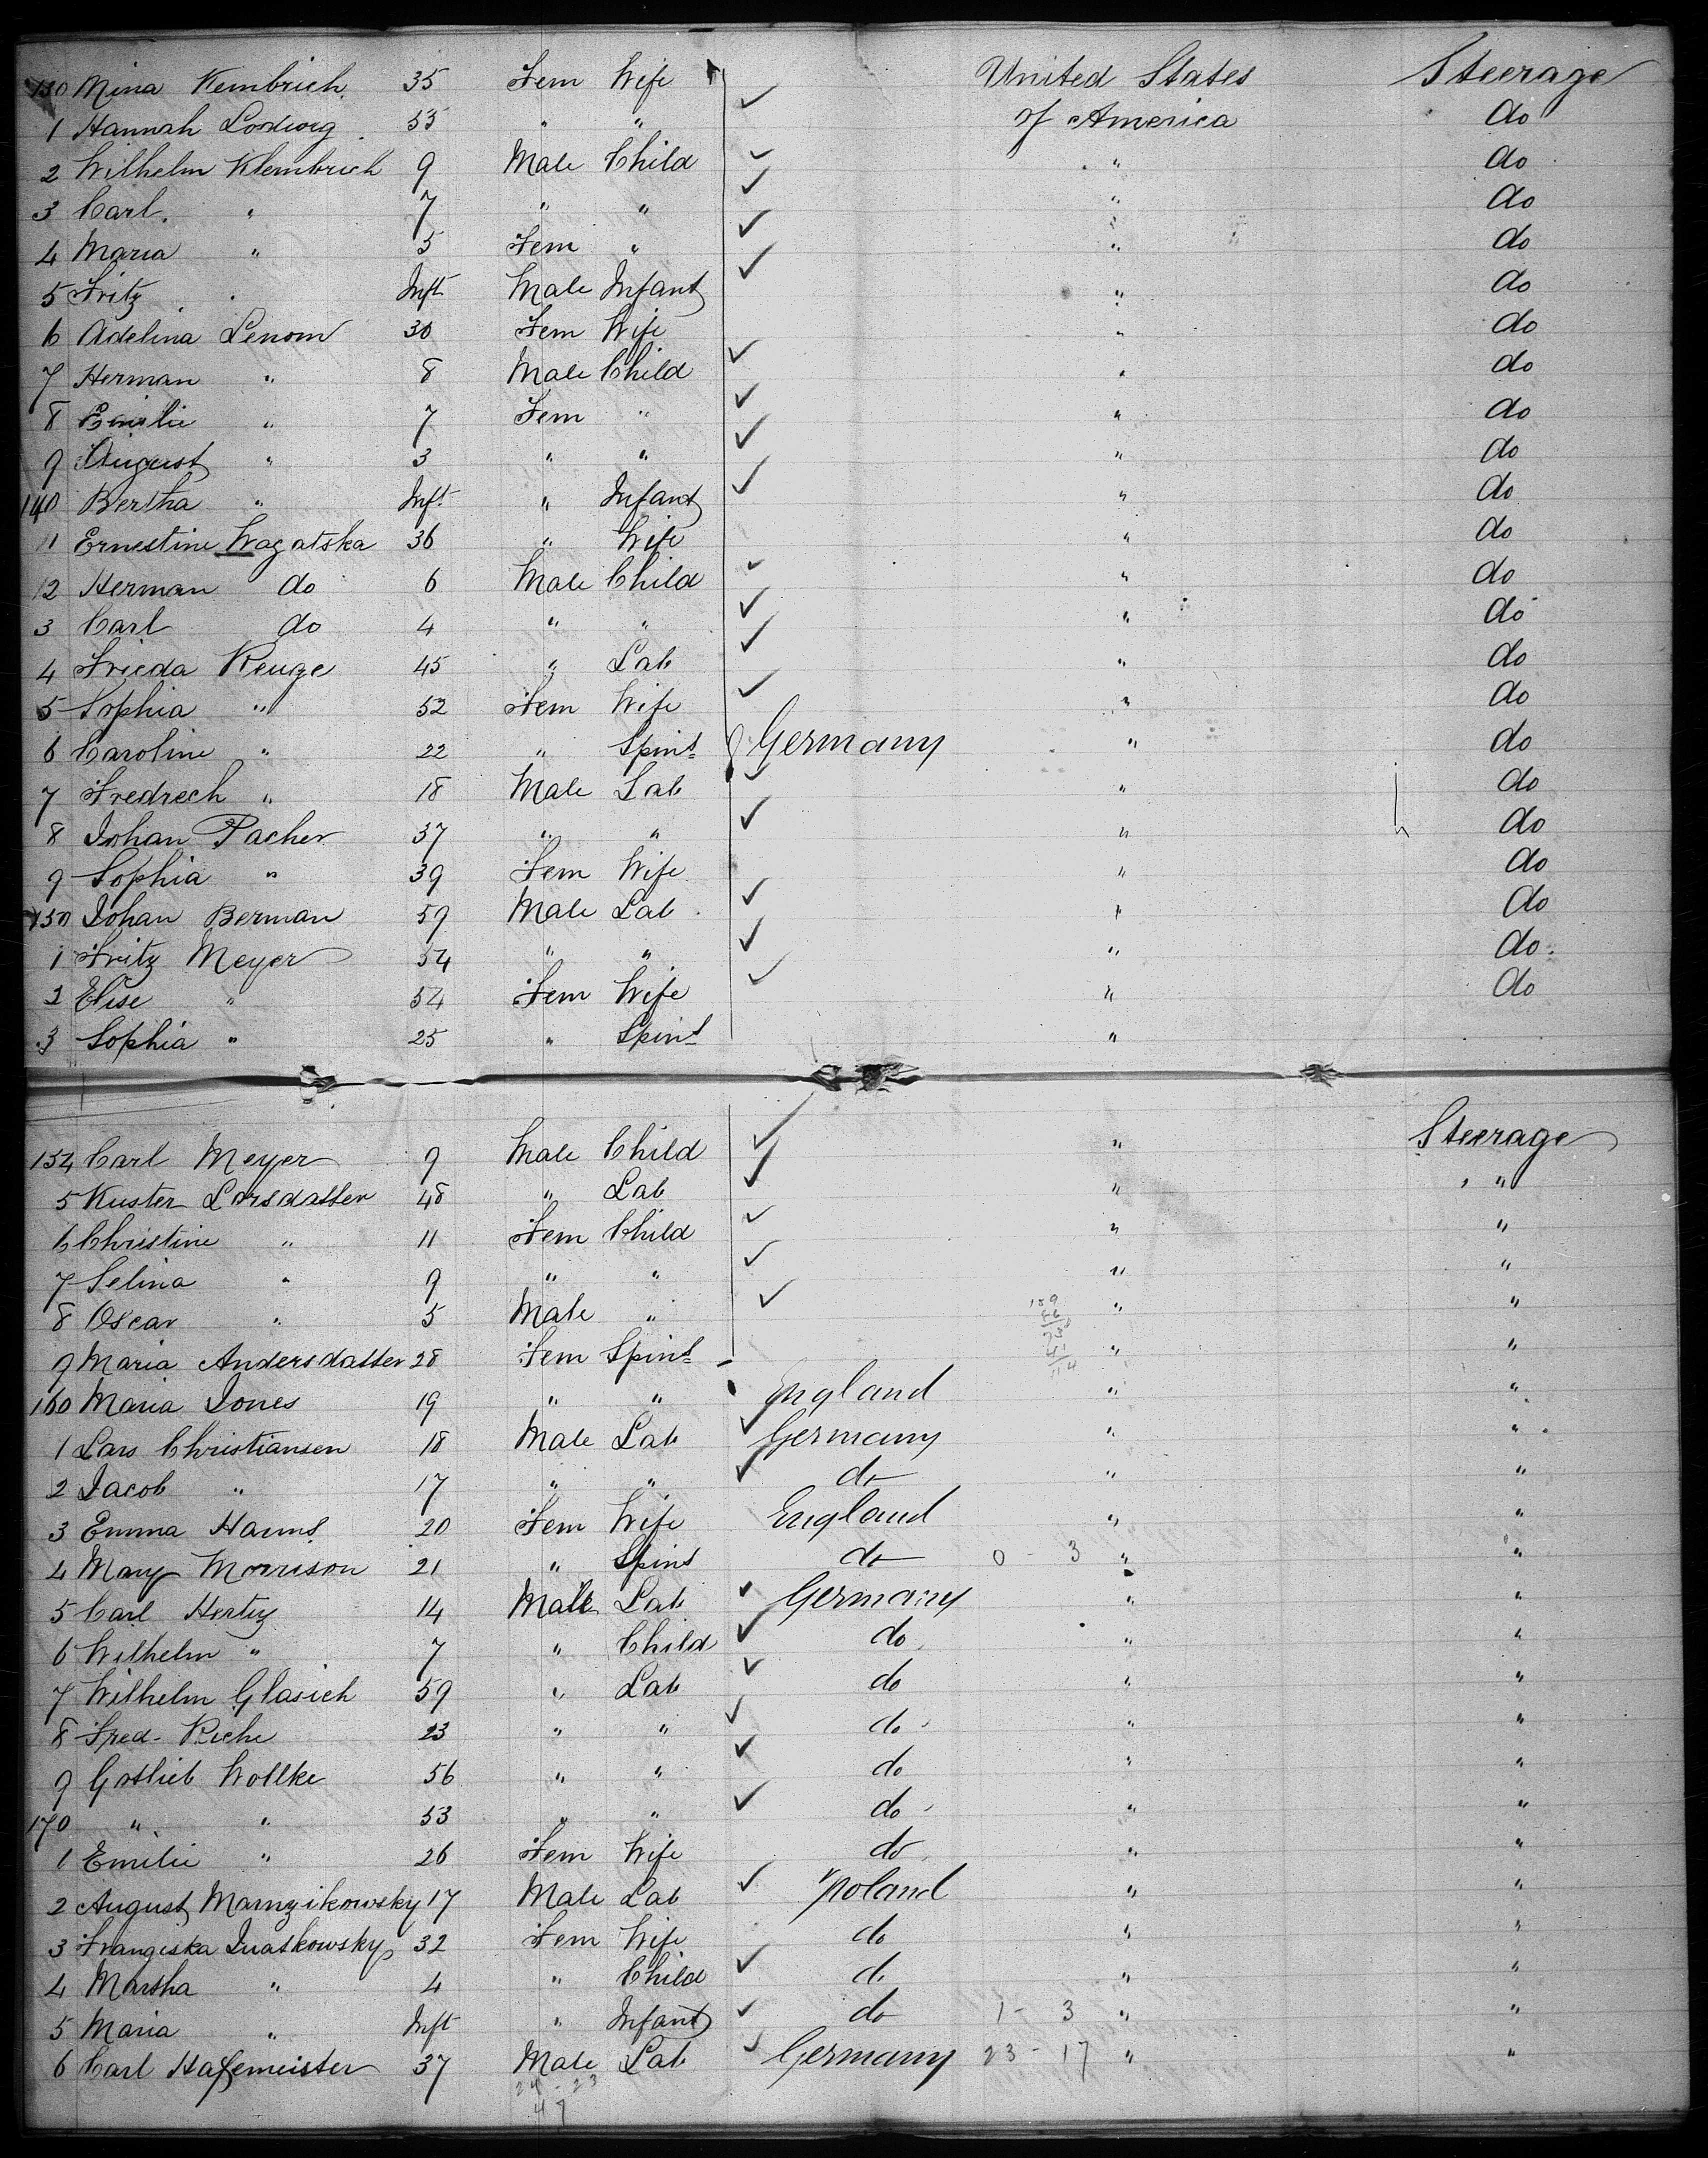 130 Mina Kembrich 35 Fem Wife United States Steerage
1 Hannah Lordwig 53 " " of America do
2 Wilhelm Klembrich 9 Male Child " do
3 Carl " 7 " " " do
4 Maria " 5 Fem " " do
5 Fritz " Inft Male Infant " do
6 Adelina Lenom 30 Fem Wife " do
7 Herman " 8 Male Child " do
8 Emilie " 7 Fem " " do
9 August " 3 " " " do
140 Bertha " Inft " Infant " do
11 Ernestine Wagatska 36 " Wife " do
12 Herman do 6 Male Child " do
3 Carl do 4 " " " do
4 Frieda Renge 45 " Lab " do
5 Sophia " 52 Fem Wife " do
6 Caroline " 22 " Spinst Germany " do
7 Fredrech " 18 Male Lab " do
8 Johan Pacher 37 " " " do
9 Sophia " 39 Fem Wife " do
150 Johan Berman 59 Male Lab " do
1 Fritz Meyer 54 " " " do
2 Elise " 54 Fem Wife " do
3 Sophia " 25 " Spinst "
154 Carl Meyer 9 Male Child " Steerage
5 Kuster Larsdatter 48 " Lab " "
6 Christine " 11 Fem Child " "
7 Selina " 9 " " " "
8 Oscar " 5 Male " " "
9 Maria Andersdatter 28 Fem Spinst " "
160 Maria Jones 19 " " England " "
1 Lars Christiansen 18 Male Lab Germany " "
2 Jacob " 17 " " do " "
3 Emma Harms 20 Fem Wife England " "
4 Mary Morrison 21 " Spinst do 0 - 3 " "
5 Carl Hertz 14 Male Lab Germany " "
6 Wilhelm " 7 " Child do " "
7 Wilhelm Glasich 59 " Lab do " "
8 Fred- Riche 23 " " do " "
9 Gotlieb Wollke 56 " " do " "
170 " " 53 " " do " "
1 Emilie " 26 Fem Wife do " "
2 August Marnzikowsky 17 Male Lab Poland " "
3 Frangiska Quatkowsky 32 Fem Wife do " "
4 Martha " 4 " Child do " "
5 Maria " Inft " Infant do 1 - 3 " "
6 Carl Hafemeister 37 Male Lab Germany 23 - 17 " "
24 - 23
47